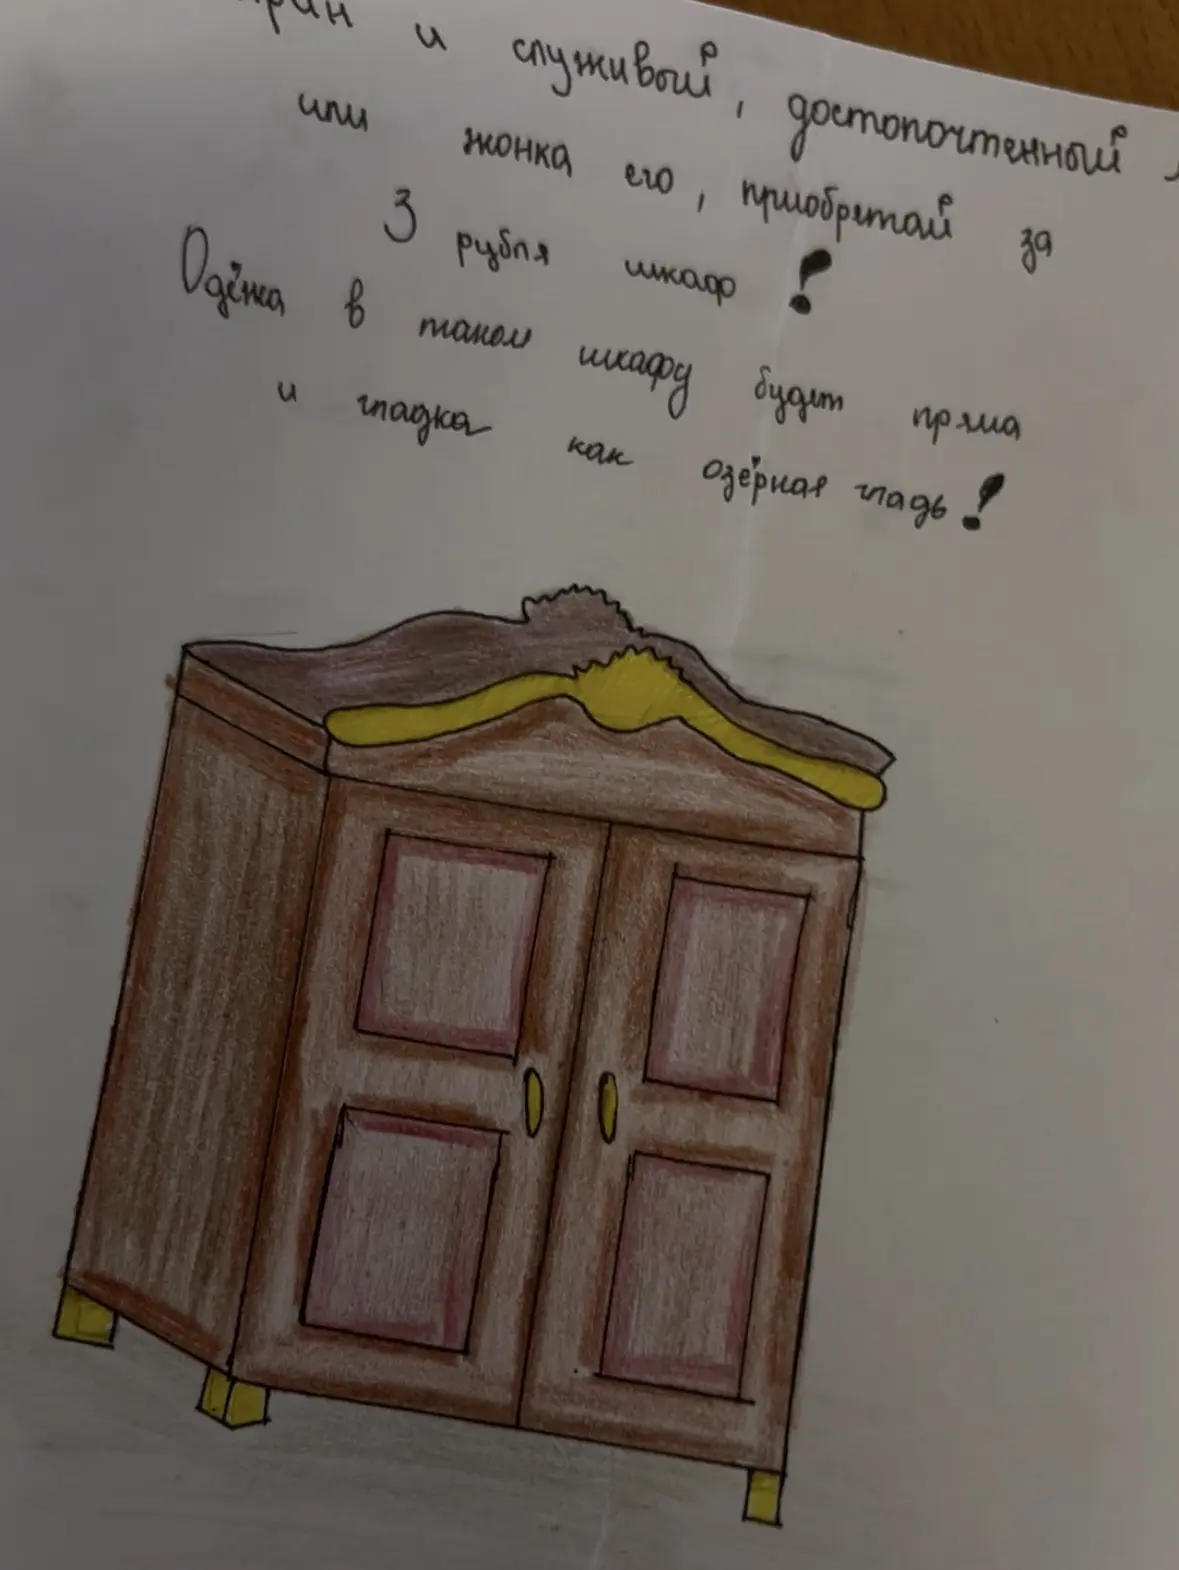 и служивый, достопочтенный
или жонка его, приобретай за
3 рубля шкаф!
Одёжа в таком шкафу будет пряма
и гладка как озёрная гладь!